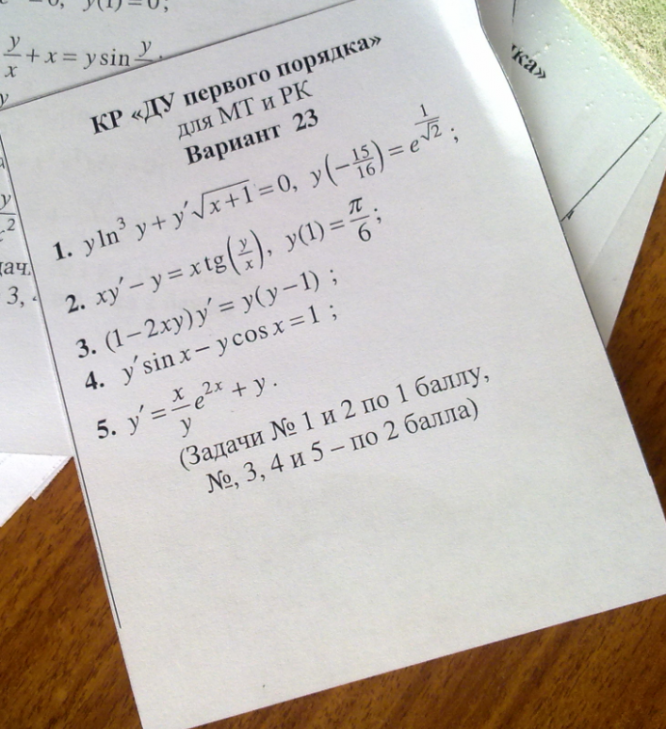 y(1)=0;
y/x + x = y sin y
КР «ДУ первого порядка»
для МТ и РК
Вариант 23
1. y ln³ y + y′√(x+1) = 0, y(−15/16) = e^(1/√2) ;
2. xy′ − y = x tg(y/x), y(1) = π/6;
3. (1−2xy) y′ = y(y−1) ;
4. y′ sin x − y cos x = 1 ;
5. y′ = x/y e^(2x) + y .
(Задачи № 1 и 2 по 1 баллу,
№, 3, 4 и 5 – по 2 балла)
ка»
3,